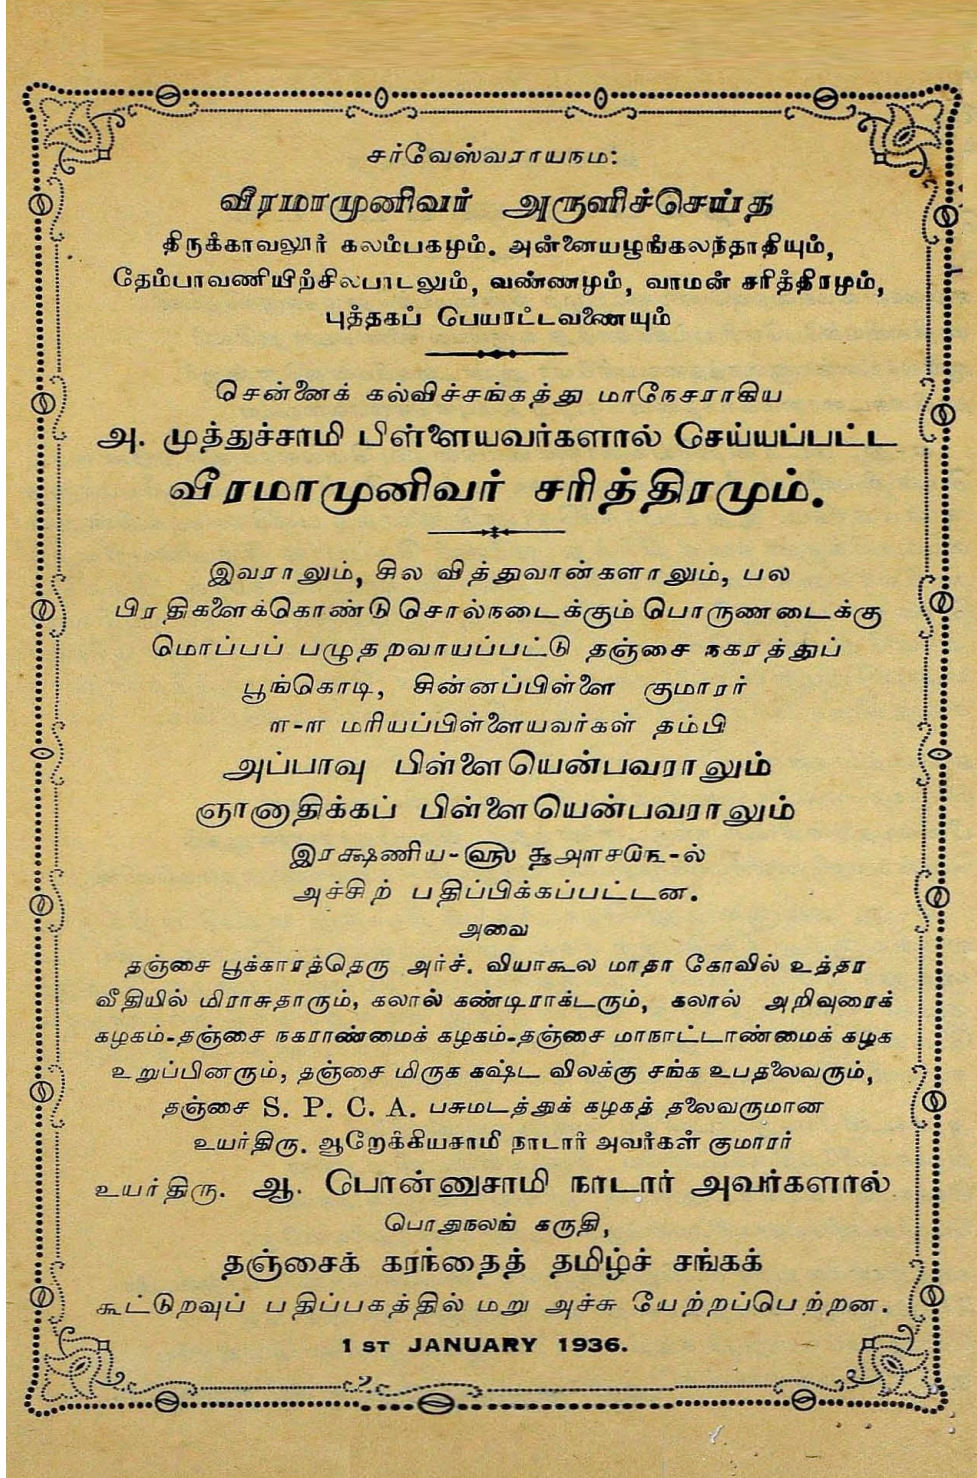 சர்வேஸ்வராயநம:
வீரமாமுனிவர் அருளிச்செய்த
திருக்காவலூர் கலம்பகமும். அன்னையழுங்கலந்தாதியும்,
தேம்பாவணியிற்சிலபாடலும், வண்ணமும், வாமன் சரித்திரமும்,
புத்தகப் பேயாட்டவணையும்
சென்னைக் கல்விச்சங்கத்து மாநேசராகிய
அ. முத்துச்சாமி பிள்ளையவர்களால் செய்யப்பட்ட
வீரமாமுனிவர் சரித்திரமும்.
இவராலும், சில வித்துவான்களாலும், பல
பிரதிகளைக்கொண்டு சொல்நடைக்கும் பொருணடைக்கு
மொப்பப் பழுதறவாயப்பட்டு தஞ்சை நகரத்துப்
பூங்கொடி, சின்னப்பிள்ளை குமாரர்
ம-ா-ா மரியப்பிள்ளையவர்கள் தம்பி
அப்பாவு பிள்ளையென்பவராலும்
ஞானாதிக்கப் பிள்ளையென்பவராலும்
இரக்ஷணிய-௵
அச்சிற் பதிப்பிக்கப்பட்டன.
அவை
தஞ்சை பூக்காரத்தெரு அர்ச். வியாகூல மாதா கோவில் உத்தர
வீதியில் மிராசுதாரும், கலால் கண்டிராக்டரும், கலால் அறிவுரைக்
கழகம்-தஞ்சை நகராண்மைக் கழகம்-தஞ்சை மாநாட்டாண்மைக் கழக
உறுப்பினரும், தஞ்சை மிருக கஷ்ட விலக்கு சங்க உபதலைவரும்,
தஞ்சை S. P. C. A. பசுமடத்துக் கழகத் தலைவருமான
உயர்திரு. ஆரேக்கியசாமி நாடார் அவர்கள் குமாரர்
உயர்திரு. ஆ. பொன்னுசாமி நாடார் அவர்களால்
பொதுநலங் கருதி,
தஞ்சைக் கரந்தைத் தமிழ்ச் சங்கக்
கூட்டுறவுப் பதிப்பகத்தில் மறு அச்சு யேற்றப்பெற்றன.
1 ST JANUARY 1936.